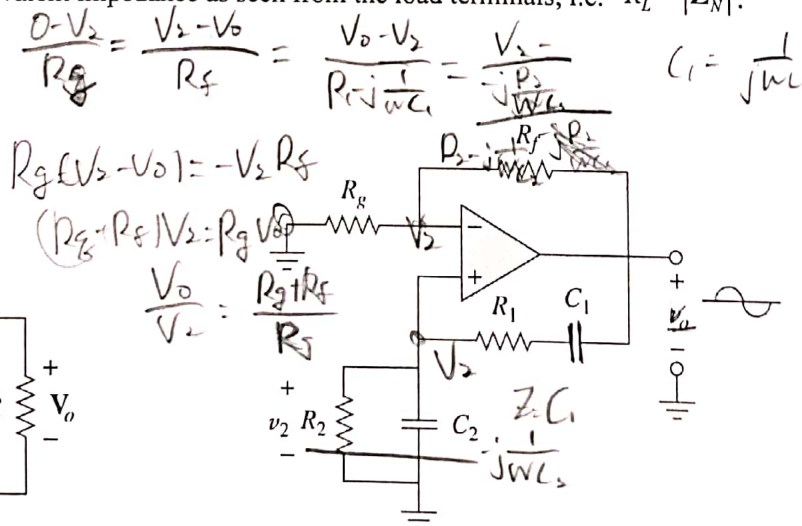 valent impedance as seen from the load terminals, i.e. R_L = |Z_N|.
(0-V₂)/Rg = (V₂-V₀)/Rf = (V₀-V₂)/(R₁-j 1/(wC₁)) = V₂-
C₁ = 1/jwC
Rg(V₂-V₀) = -V₂Rf
(Rg+Rf)V₂ = RgV₀
V₀/V₂ = (Rg+Rf)/Rg
R_f
R_g
V₂
−
+
R₁
C₁
V₂
+
v_o
−
+
V_o
−
+
v₂
−
R₂
C₂
Z C₁
-j 1/jwC₂